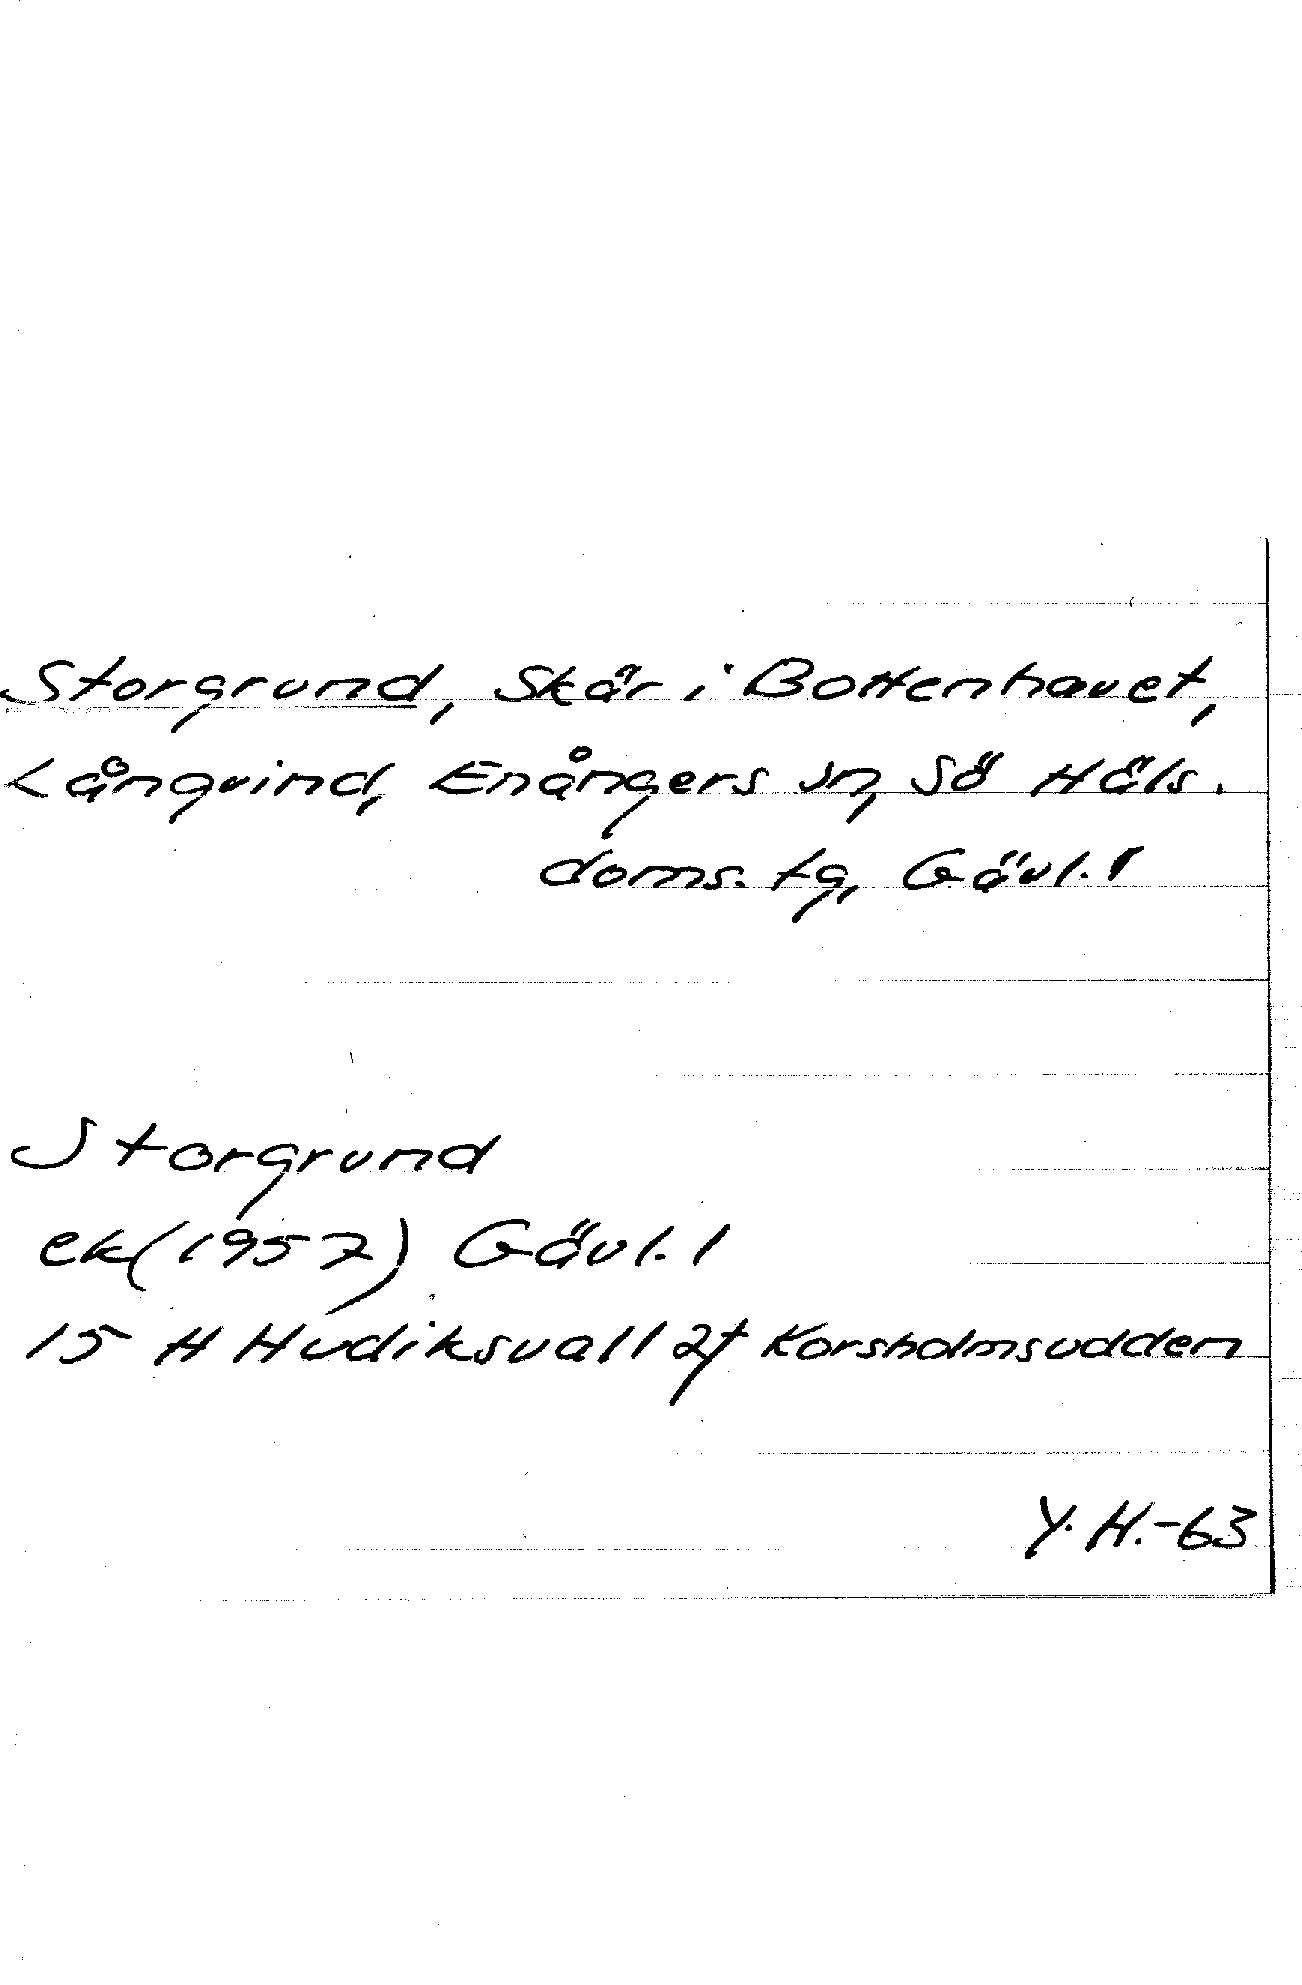 Storgrund, Skär i Bottenhavet,
Långvind, Enångers sn, Sö Häls.
doms. tg, Gävl. l
Storgrund
ek(1957) Gävl. l
15 H Hudiksvall 2f Korsholmsudden
Y. H.-63